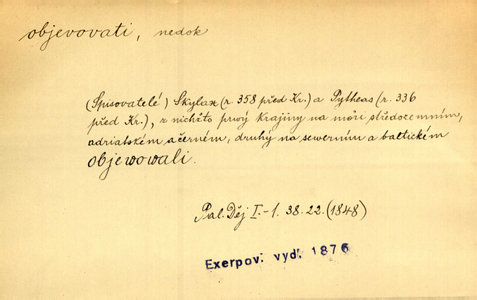 objevovati, nedok
(Spisovatelé) Skylax (r. 358 před Kr.) a Pytheas (r. 336
před Kr.), z nichžto prvý krajiny na moři středozemním,
adriatském a černém, druhý na sewerním a baltickém
objewowali.
Pal. Děj I.-1. 38. 22. (1848)
Exerpov. vyd. 1876